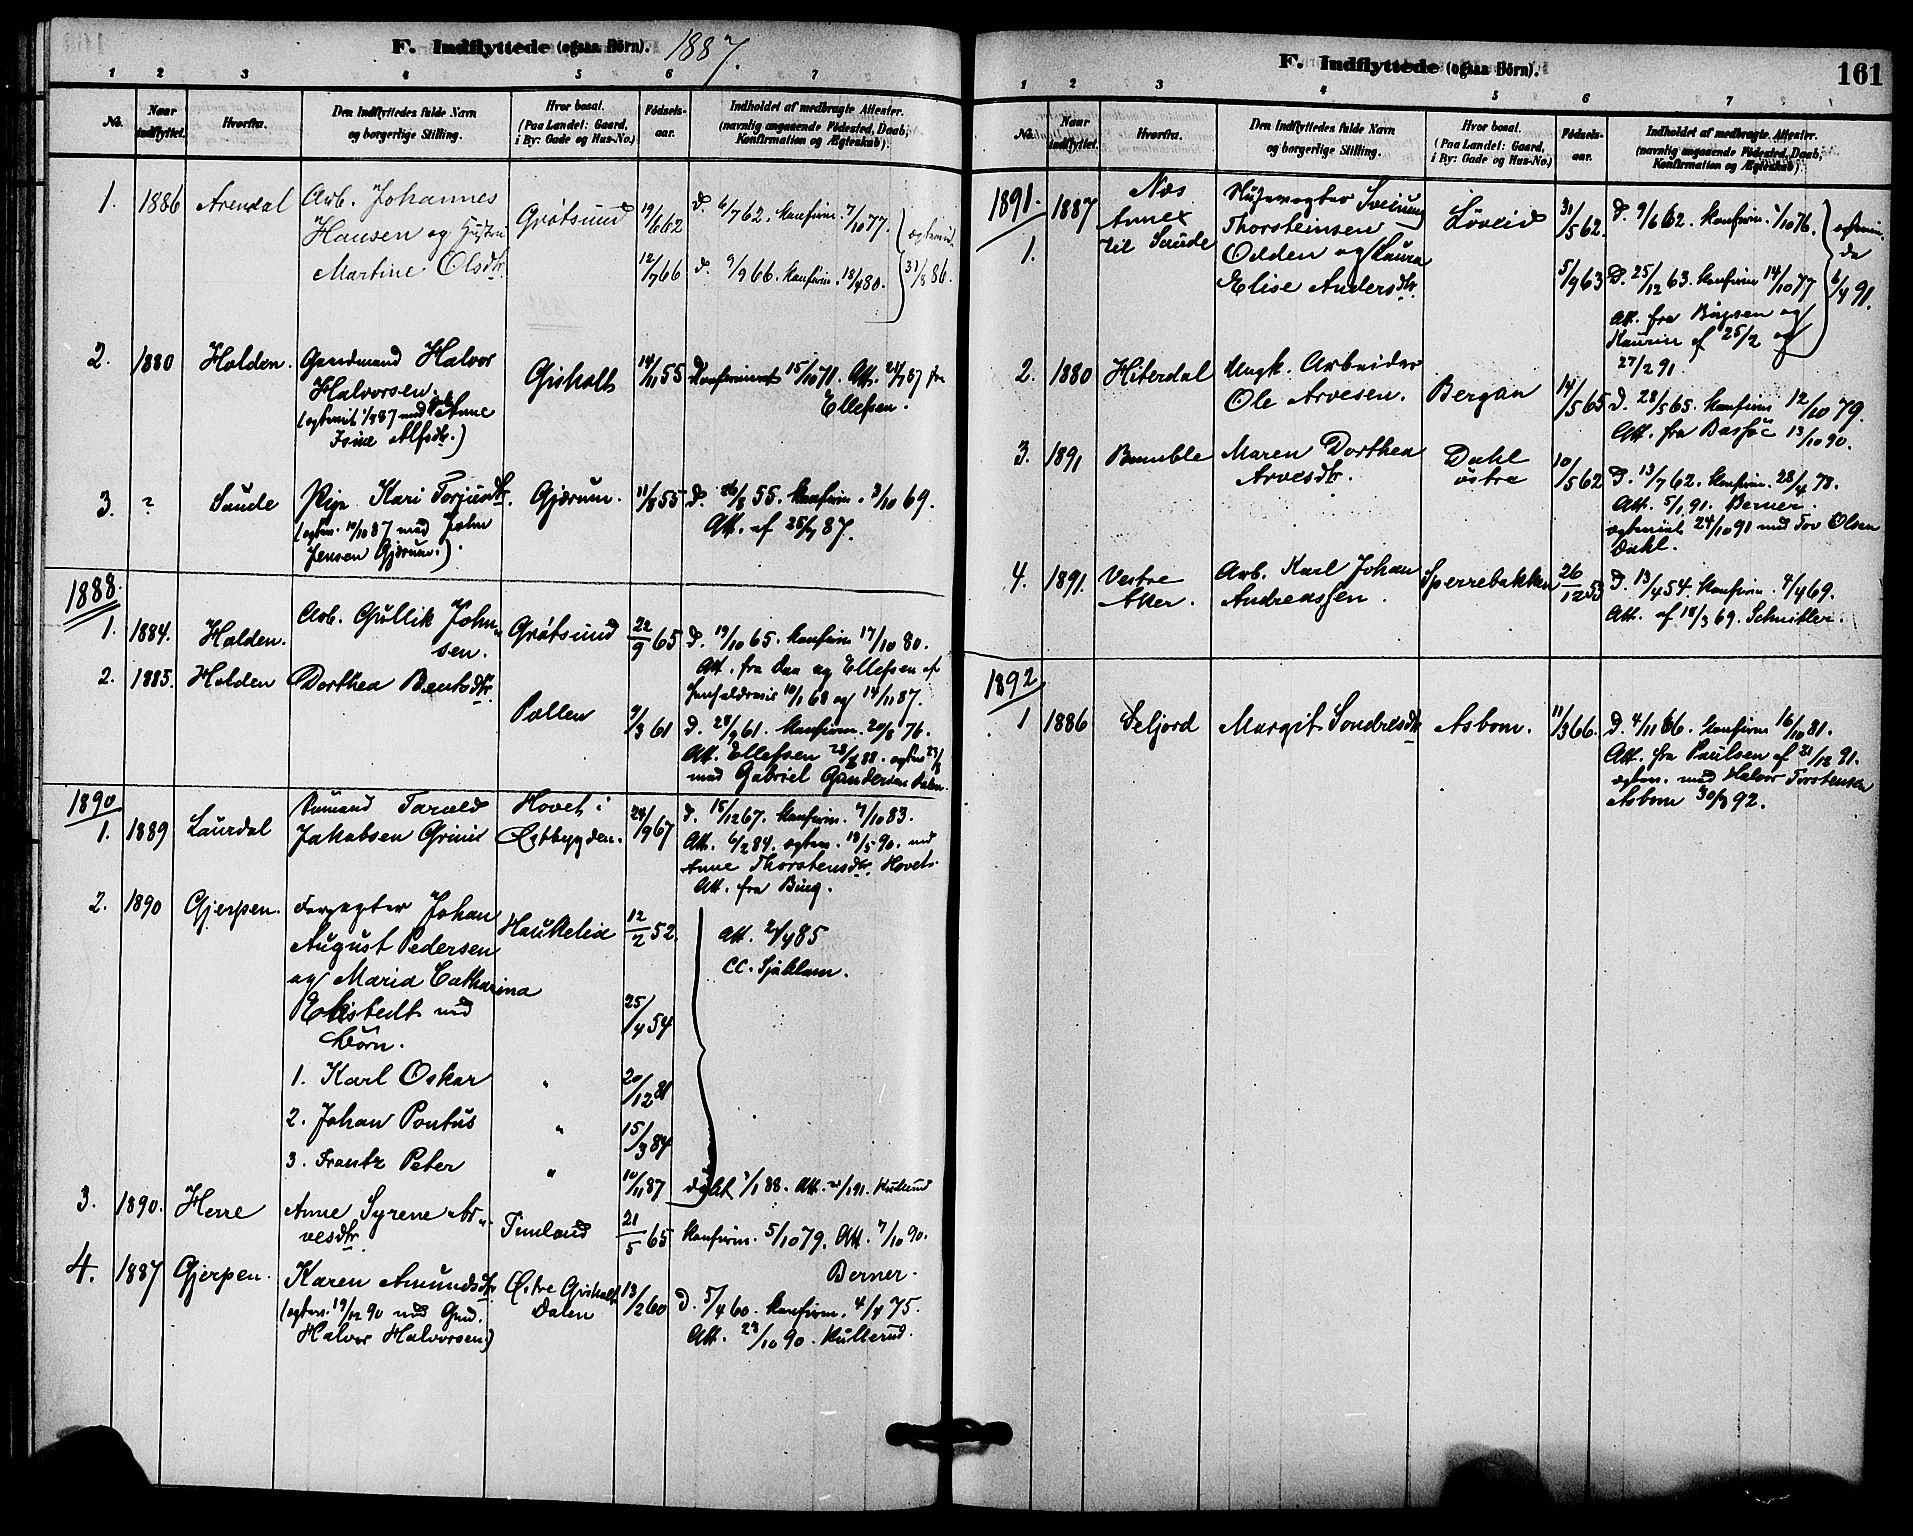 F. Indflyttede (ogsaa Börn). 1887.
1 2 3 4 5 6 7
No.
Naar indflyttet.
Hvorfra.
Den Indflyttedes fulde Navn
og borgerlige Stilling.
Hvor bosat.
(Paa Landet: Gaard,
i By: Gade og Hus-No.)
Födsels-
aar.
Indholdet af medbragte Attester.
(navnlig angaaende Födested, Daab,
Konfirmation og Ægteskab)
1. 1886 Arendal Arb. Johannes
Hansen og Hustru
Martine Olsdtr.
Grøtsund
19/6 62
D. 6/7 62. Konfirm. 7/10 77.
12/7 66
D. 9/9 66. Konfirm. 18/4 80.
31/8 86.
2. 1880 Holden. Gaardmand Halvor
Halvorsen.
(egteviet 1/7 87 med Anne
Alfsdtr.)
Gisholt
14/11 55
Konfirmeret 15/10 71. Att. fra
Ellefsen.
3. ? Saude Pige Kari Torjusdtr.
(egtev. 14/10 87 med John
Jensen Gjærum.)
Gjærum.
11/8 55
D. 26/8 55. Konfirm. 3/10 69.
Att. af 25/9 87.
1888.
1. 1884. Holden. Arb. Gullik John-
sen.
Grøtsund
22/9 65
D. 19/10 65. Konfirm 17/10 80.
Att. fra Daa og Ellefsen af
10/1 68 og 14/11 87.
2. 1885. Holden Dorthea Bentsdtr.
Pollen
9/3 61
D. 28/9 61. Konfirm. 20/8 76.
Att. Ellefsen
med Gabriel Gundersen Dalen
1890
1. 1889 Laurdal Tarald
Jakobsen Grimi
Hovet i
Østbygden.
24/9 67
D. 15/12 67. Konfirm. 7/10 83.
Att. 6/2 84. egtev. 18/5 90. med
Anne Thorstensdtr. Hovet.
Att. fra Bing.
2. 1890 Gjerpen. Forpagter Johan
August Pedersen
og Maria Catharina
Ekstedt med
Børn.
Haukelid
12/2 52.
Att. 2/4 85
CC. Sjøblom.
25/4 54
1. Karl Oskar " 20/12 81
2. Johan Pontus " 15/3 84
3. Frantz Peter " 10/11 87
døbt 1/1 88. Att. Kullerud
3. 1890. Herre Anne Syrene Ar-
vesdtr.
Timland
21/5 65
Konfirm. 5/10 79. Att. 7/10 90.
Berner.
4. 1887 Gjerpen. Karen Amundsdtr.
(egtev. 19/12 90 med Gmd.
Halvor Halvorsen.)
Østre Gisholt
Dalen
13/2 60
D. 5/4 60. Konfirm. 4/4 75.
Att. 23/10 90. Kullerud.
F. Indflyttede (ogsaa Börn).
161
1 2 3 4 5 6 7
No.
Naar indflyttet.
Hvorfra.
Den Indflyttedes fulde Navn
og borgerlige Stilling.
Hvor bosat.
(Paa Landet: Gaard,
i By: Gade og Hus-No.)
Födsels-
aar.
Indholdet af medbragte Attester.
(navnlig angaaende Födested, Daab,
Konfirmation og Ægteskab)
1891.
1. 1887 Næs
Annex
til Saude
Sveinung
Thorsteinsen
Odden og Laura
Elise Andersdtr.
Løveid
31/5 62.
D. 9/6 62. Konfirm. 1/10 76.
5/9 63
D. 25/12 63. Konfirm 14/10 77
Att. fra Bugsen og
Kaurin af 25/2 og
27/2 91.
egtevi-
de
6/4 91.
2. 1880 Hiterdal Ungk. Arbeider
Ole Arvesen.
Bergan
14/5 65
D. 28/5 65. Konfirm 12/10 79.
Att. fra Bassøe 13/10 90.
3. 1891 Bamble Maren Dorthea
Arvesdtr.
Dahl
østre
10/5 62
D. 13/7 62. Konfirm. 28/4 78.
Att. 5/1 91. Berner.
egteviet 24/10 91 med Tov Olsen
Dahl.
4. 1891. Vestre
Aker.
Arb. Karl Johan
Andreassen.
Sperrebakken
26/12 53
D. 13/4 54. Konfirm. 4/4 69.
Att. af 18/3 69. Schnitler.
1892
1 1886 Seljord Margit Sondresdtr.
Asbom.
11/3 66.
D. 4/11 66. Konfirm 16/10 81.
Att. fra Paulsen af 21/12 91.
egtev. med Halvor Torstensen
Asbom 30/3 92.